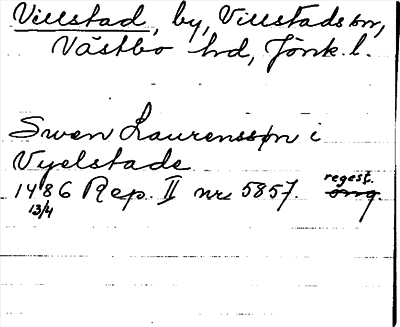 Villstad, by, Villstads sn,
Västbo hd, Jönk. l.
Swen Laurensson i
Vyelstade
1486 Rep. II nr 5857. regest.
13/4 orig.